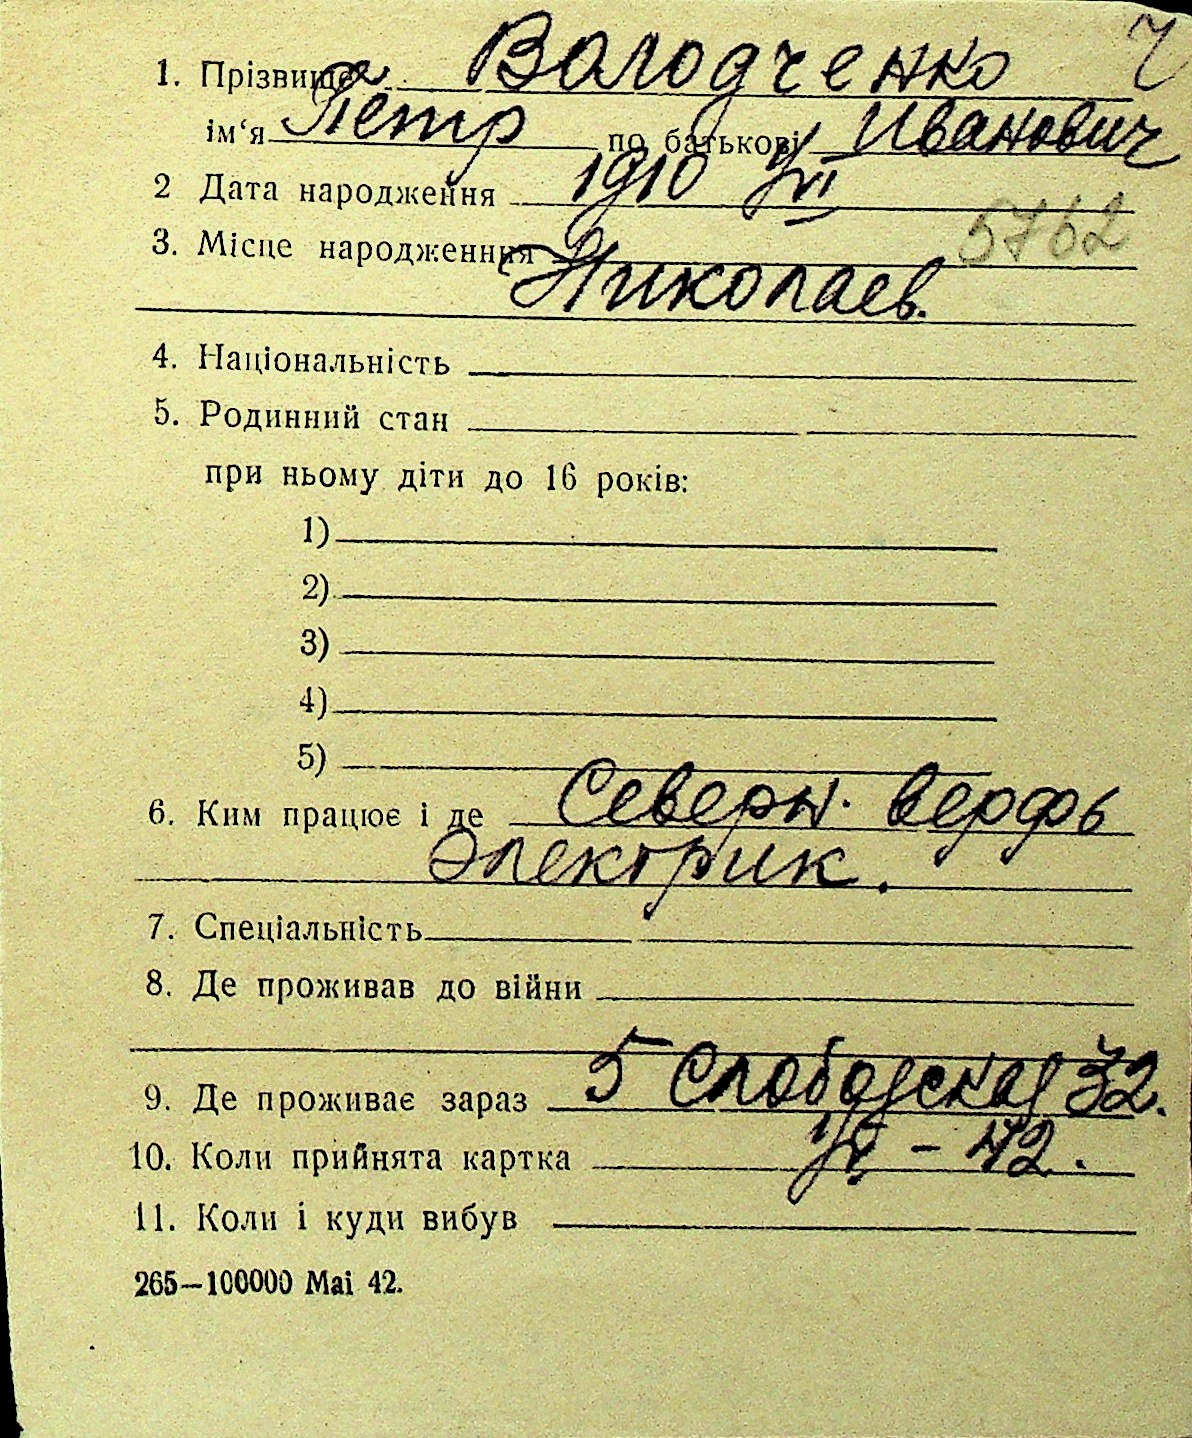 Ч
1. Прізвище Володченко
ім‘я Петр по батькові Иванович
2 Дата народження 1910 VI
3. Місце народженння 5762
Николаев.
4. Національність
5. Родинний стан
при ньому діти до 16 років:
1)
2)
3)
4)
5)
6. Ким працює і де Северн. верфь
Электрик.
7. Спеціальність
8. Де проживав до війни
9. Де проживає зараз 5 Слободская 32.
10. Коли прийнята картка – 42.
11. Коли і куди вибув
265—100000 Mai 42.